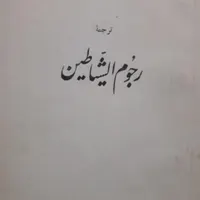 ترجمة
رجوم الشياطين